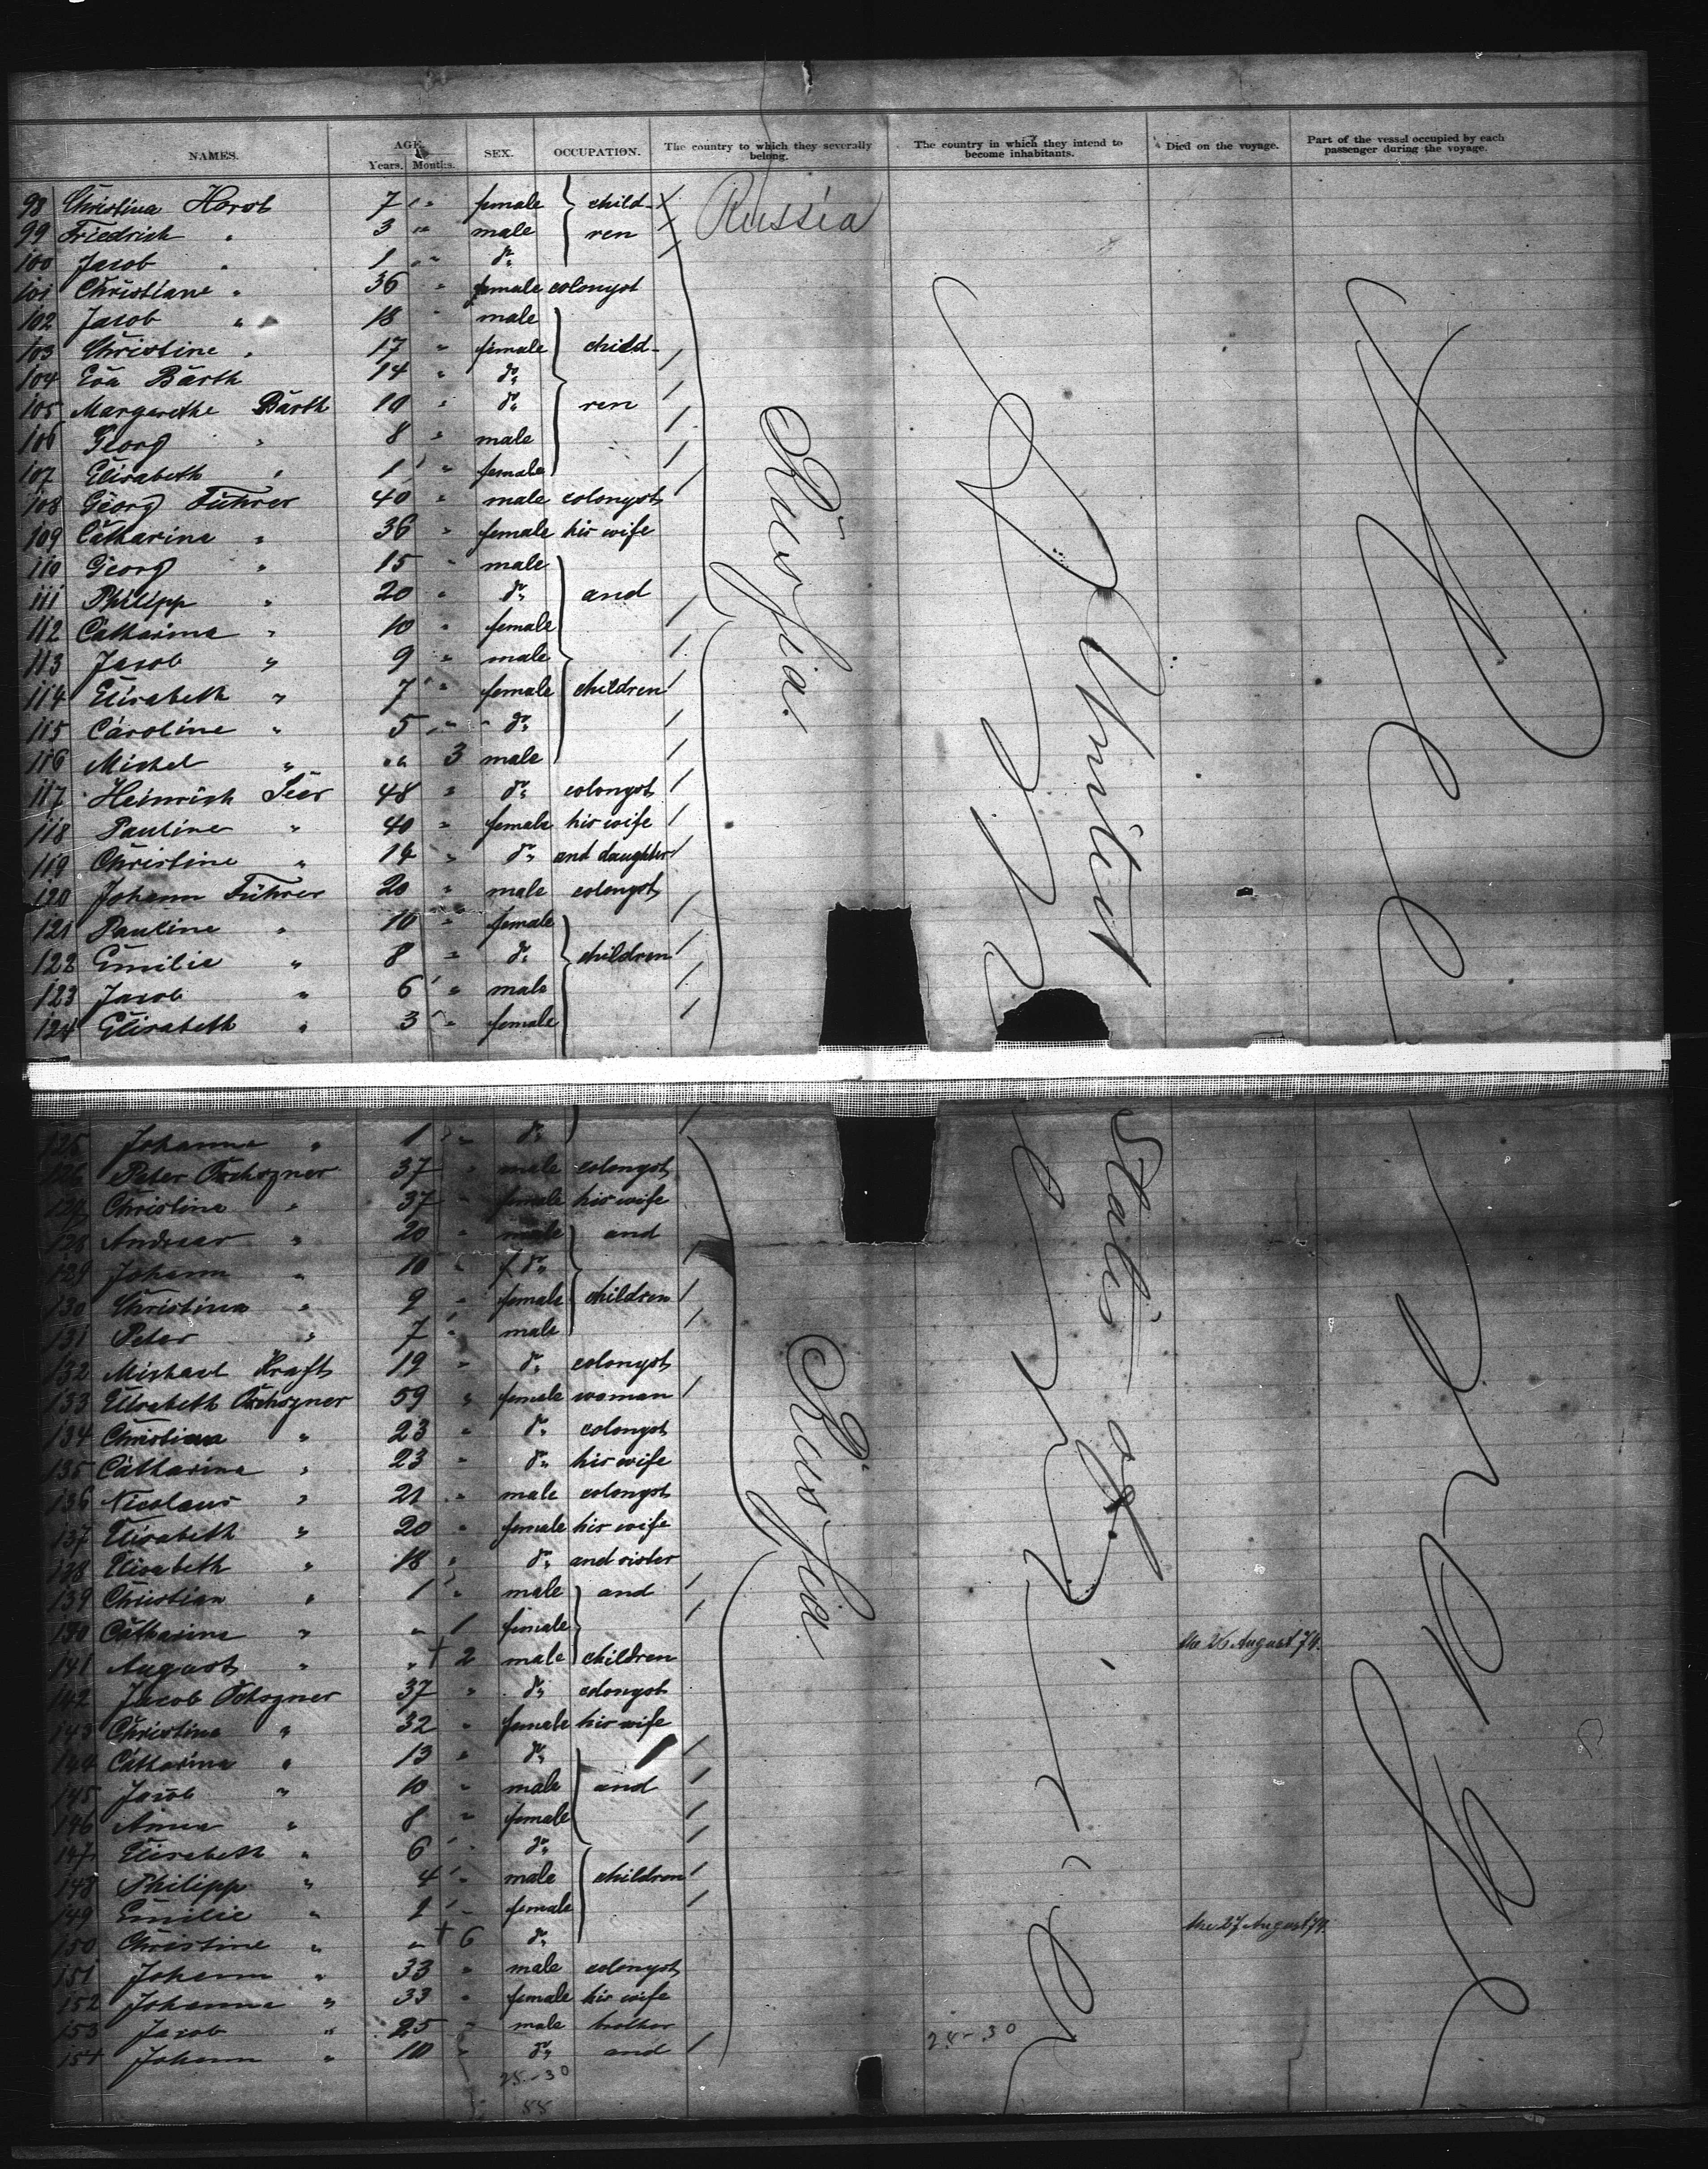 NAMES. AGE. Years. Months. SEX. OCCUPATION. The country to which they severally belong. The country in which they intend to become inhabitants. Died on the voyage. Part of the vessel occupied by each passenger during the voyage.
98 Christina Horst 7 " female child- Russia
99 Friedrich " 3 " male ren
100 Jacob " 1 " do
101 Christiane " 36 " female colonyst
102 Jacob " 18 " male
103 Christine " 17 " female child-
104 Eva Barth 14 " do
105 Margarethe Barth 10 " do ren
106 Georg " 8 " male
107 Elisabeth " 1 " female
108 Georg Führer 40 " male colonyst
109 Catharina " 36 " female his wife
110 Georg " 15 " male
111 Philipp " 20 " do and
112 Catharina " 10 " female
113 Jacob " 9 " male
114 Elisabeth " 7 " female children
115 Caroline " 5 " do
116 Michel " " 3 male
117 Heinrich 48 " do colonyst
118 Pauline " 40 " female his wife
119 Christine " 14 " do and daughter
120 Johann Führer 20 " male colonyst
121 Pauline " 10 " female
122 Emilie " 8 " do children
123 Jacob " 6 " male
124 Elisabeth " 3 " female
Russia.
United
125 Johanna " 1 " do
126 Peter 37 " male colonyst
127 Christina " 37 " female his wife
128 Andreas " 20 " male and
129 Johann " 10 " do
130 Christina " 9 " female children
131 Peter " 7 " male
132 Michael Kraft 19 " do colonyst
133 Elisabeth 59 " female woman
134 Christian " 23 " do colonyst
135 Catharina " 23 " do his wife
136 Nicolaus " 21 " male colonyst
137 Elisabeth " 20 " female his wife
138 Elisabeth " 18 " do and sister
139 Christian " 1 " male and
130 Catharina " " 1 female
141 August " " † 2 male children the 26 August 74.
142 Jacob 37 " do colonyst
143 Christina " 32 " female his wife
144 Catharina " 13 " do
145 Jacob " 10 " male and
146 Anna " 8 " female
147 Elisabeth " 6 " do
148 Philipp " 4 " male children
149 Emilie " 2 " female
150 Christine " " † 6 do the 27 August 74.
151 Johann " 33 " male colonyst
152 Johanna " 33 " female his wife
153 Jacob " 25 " male brother
154 Johann " 10 " do and
Russia.
States of
28-30
28-30
88